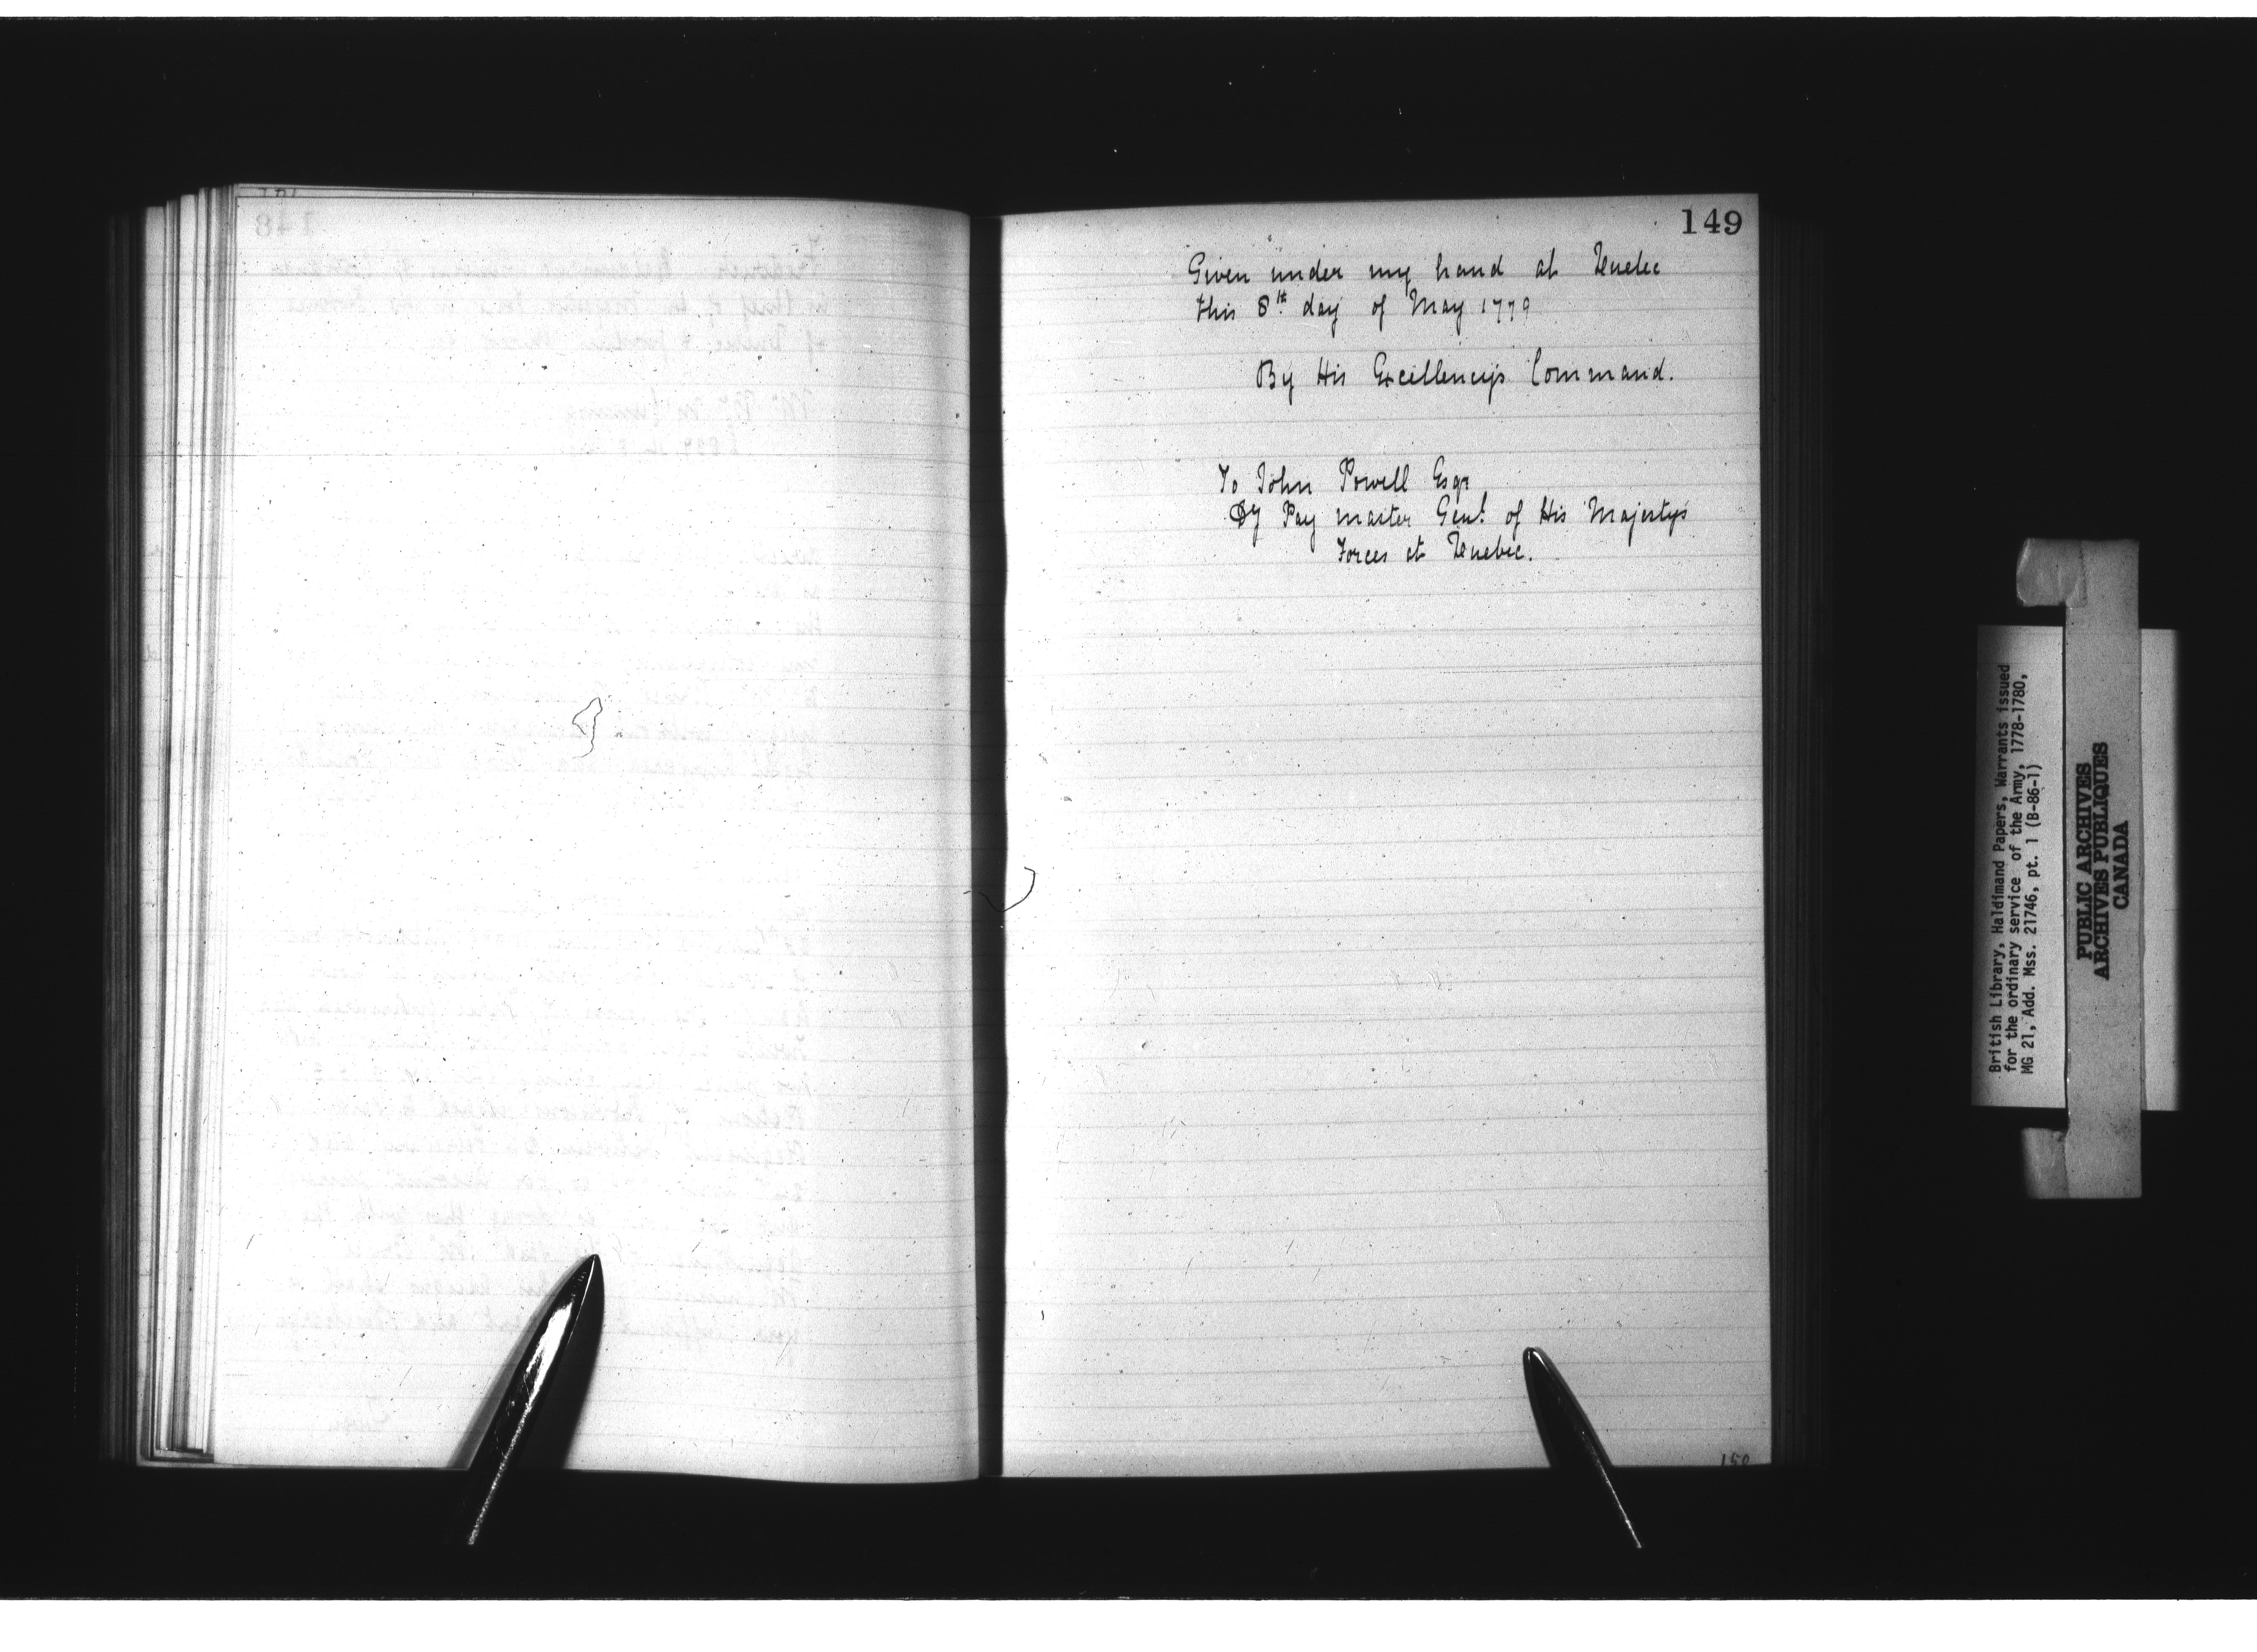 149
Given under my hand at Quebec
this 8th. day of May 1779
By His Excellency's Command.
To John Powell Esqr
Dy Pay master Genl. of His Majesty's
Forces at Quebec.
150
British Library, Haldimand Papers, Warrants issued
for the ordinary service of the Army, 1778-1780,
MG 21, Add. Mss. 21746, pt. 1 (B-86-1)
PUBLIC ARCHIVES
ARCHIVES PUBLIQUES
CANADA